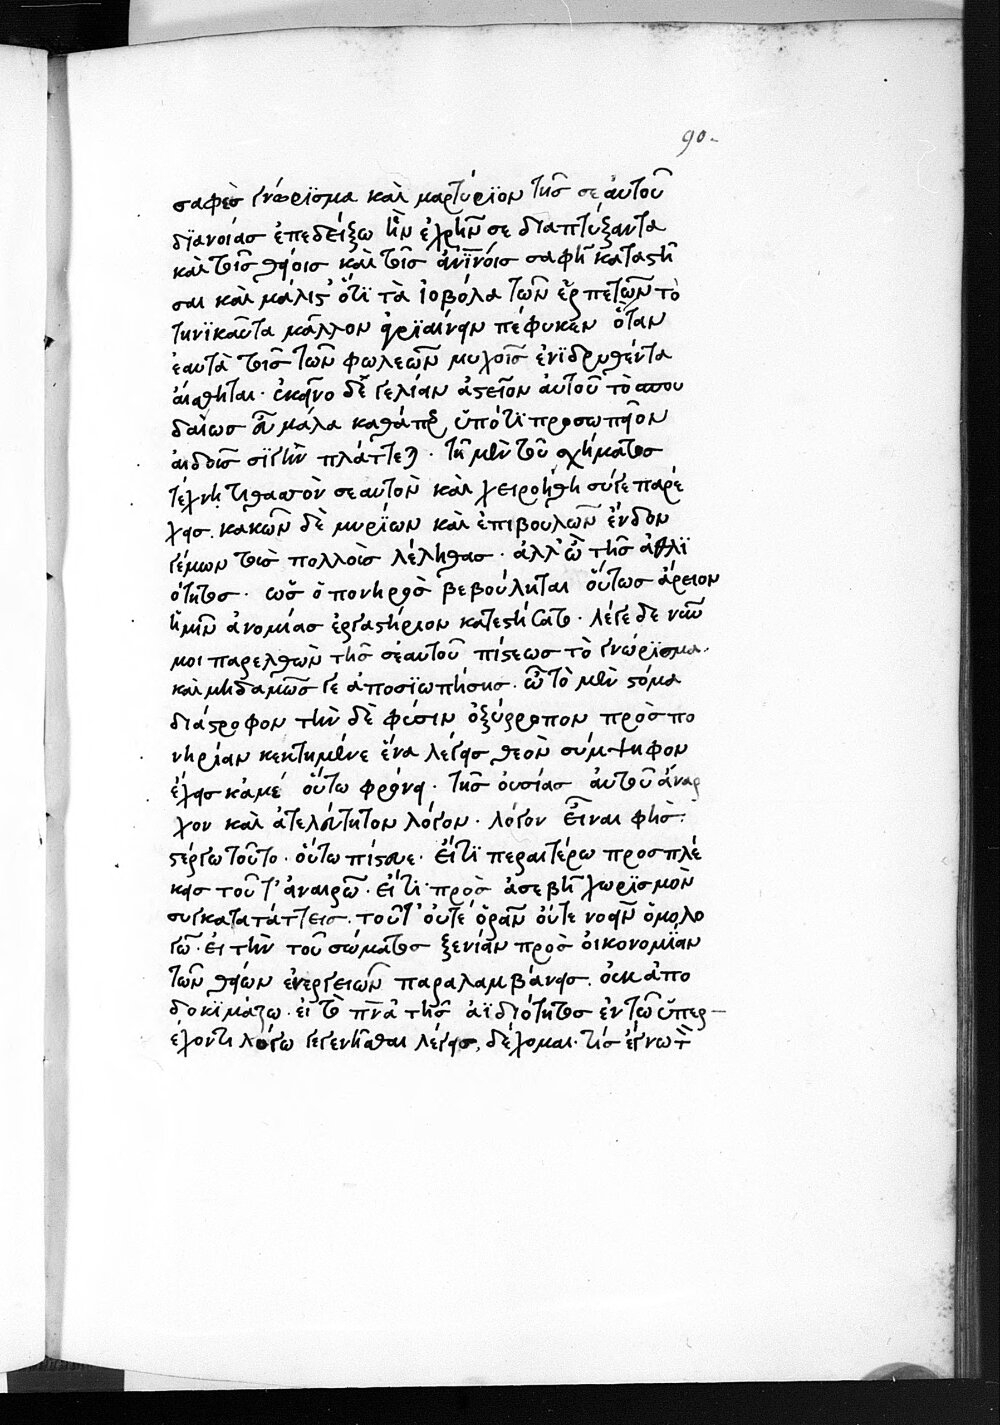 90
σαφὲς γνώρϊσμα καὶ μαρτύρϊον τῆς σεἀυτοῦ
δϊανοίας ἐπεδείξω ἣν ἐχρῆν σε διαπτύξαντα
καὶ τοῖς θείοις καὶ τοῖς ἀνῑνοις σαφῆ καταστῆ
σαι καὶ μάλιστ' ὅτϊ τὰ ἰοβόλα τῶν ἑρπετῶν τὸ
τηνϊκαῦτα μᾶλλον ἀγρϊαίνειν πέφυκεν ὅταν
ἑαυτὰ τοῖς τῶν φωλεῶν μυχοῖς ἐνϊδρυθέντα
ἀισθηται· ἐκεῖνο δὲ γελίαν ἀστεῖον ἀυτοῦ τὸ σπου
δαίως μάλα καθάπερ ὑπό τϊ προσωπεῖον
ἀιδοῖς σϊγὴν πλάττε · τῆ μὲν τοῦ σχήματος
τέχνη τιθασσὸν σεαυτὸν καὶ χειροήθη σύγε παρέ
χεις. κακῶν δὲ μυρϊων καὶ ἐπιβουλῶν ἔνδον
γέμων τοὺς πολλοὺς λέληθας· ἀλλ' ὢ τῆς ἀθλϊ
ότητος· ὡς ὁ πονηρὸς βεβούληται οὕτως ἄρειον
ἡμῖν ἀνομίας ἐργαστήριον κατεστήσατο· λέγε δε νῦν
μοι παρελθὼν τῆς σεαυτοῦ πίστεως τὸ γνώρϊσμα·
καὶ μηδαμῶς γε ἀποσϊωπήσης· ὦ τὸ μὲν στόμα
διάστροφον τὴν δὲ φύσιν ὀξύρροπον πρὸς πο
νηρίαν κεκτημένε ἕνα λέγεις θεὸν σύμψηφον
ἔχεις κἀμέ οὕτω φρόνει· τῆς ὀυσίας ἀυτοῦ ἄναρ
χον καὶ ἀτελεύτητον λόγον· λόγον εἶναι φής·
στέργω τοῦτο· οὕτω πίστευε· εἴ τϊ περαιτέρω προσπλέ
κεις τοῦτ' ἀναιρῶ· εἴ τϊ πρὸς ἀσεβῆ χωρϊσμὸν
συγκατατάττεις· τοῦτ' ὀυτε ὁρᾶν οὔτε νοεῖν ὁμολο
γῶ· ει τὴν τοῦ σώματος ξενίαν πρὸς ὀικονομίαν
τῶν θείων ἐνεργειῶν παραλαμβάνεις. ὀυκ ἀπο
δοκϊμάζω· εἰ τὸ πνα τῆς ἀϊδιότητος ἐν τῶ ὑπερ
έχοντι λόγω γεγενῆσθαι λέγεις, δέχομαι· τίς ἔγνω τ